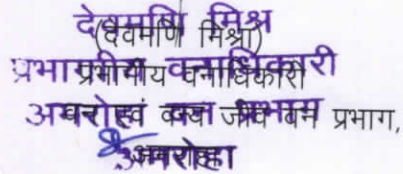 देवमणि मिश्र
(देवमणि मिश्रा)
प्रभागीय वनाधिकारी
प्रभागीय वनाधिकारी
अमरोहा वन प्रभाग
वन एवं वन्य जीव वन प्रभाग,
अमरोहा